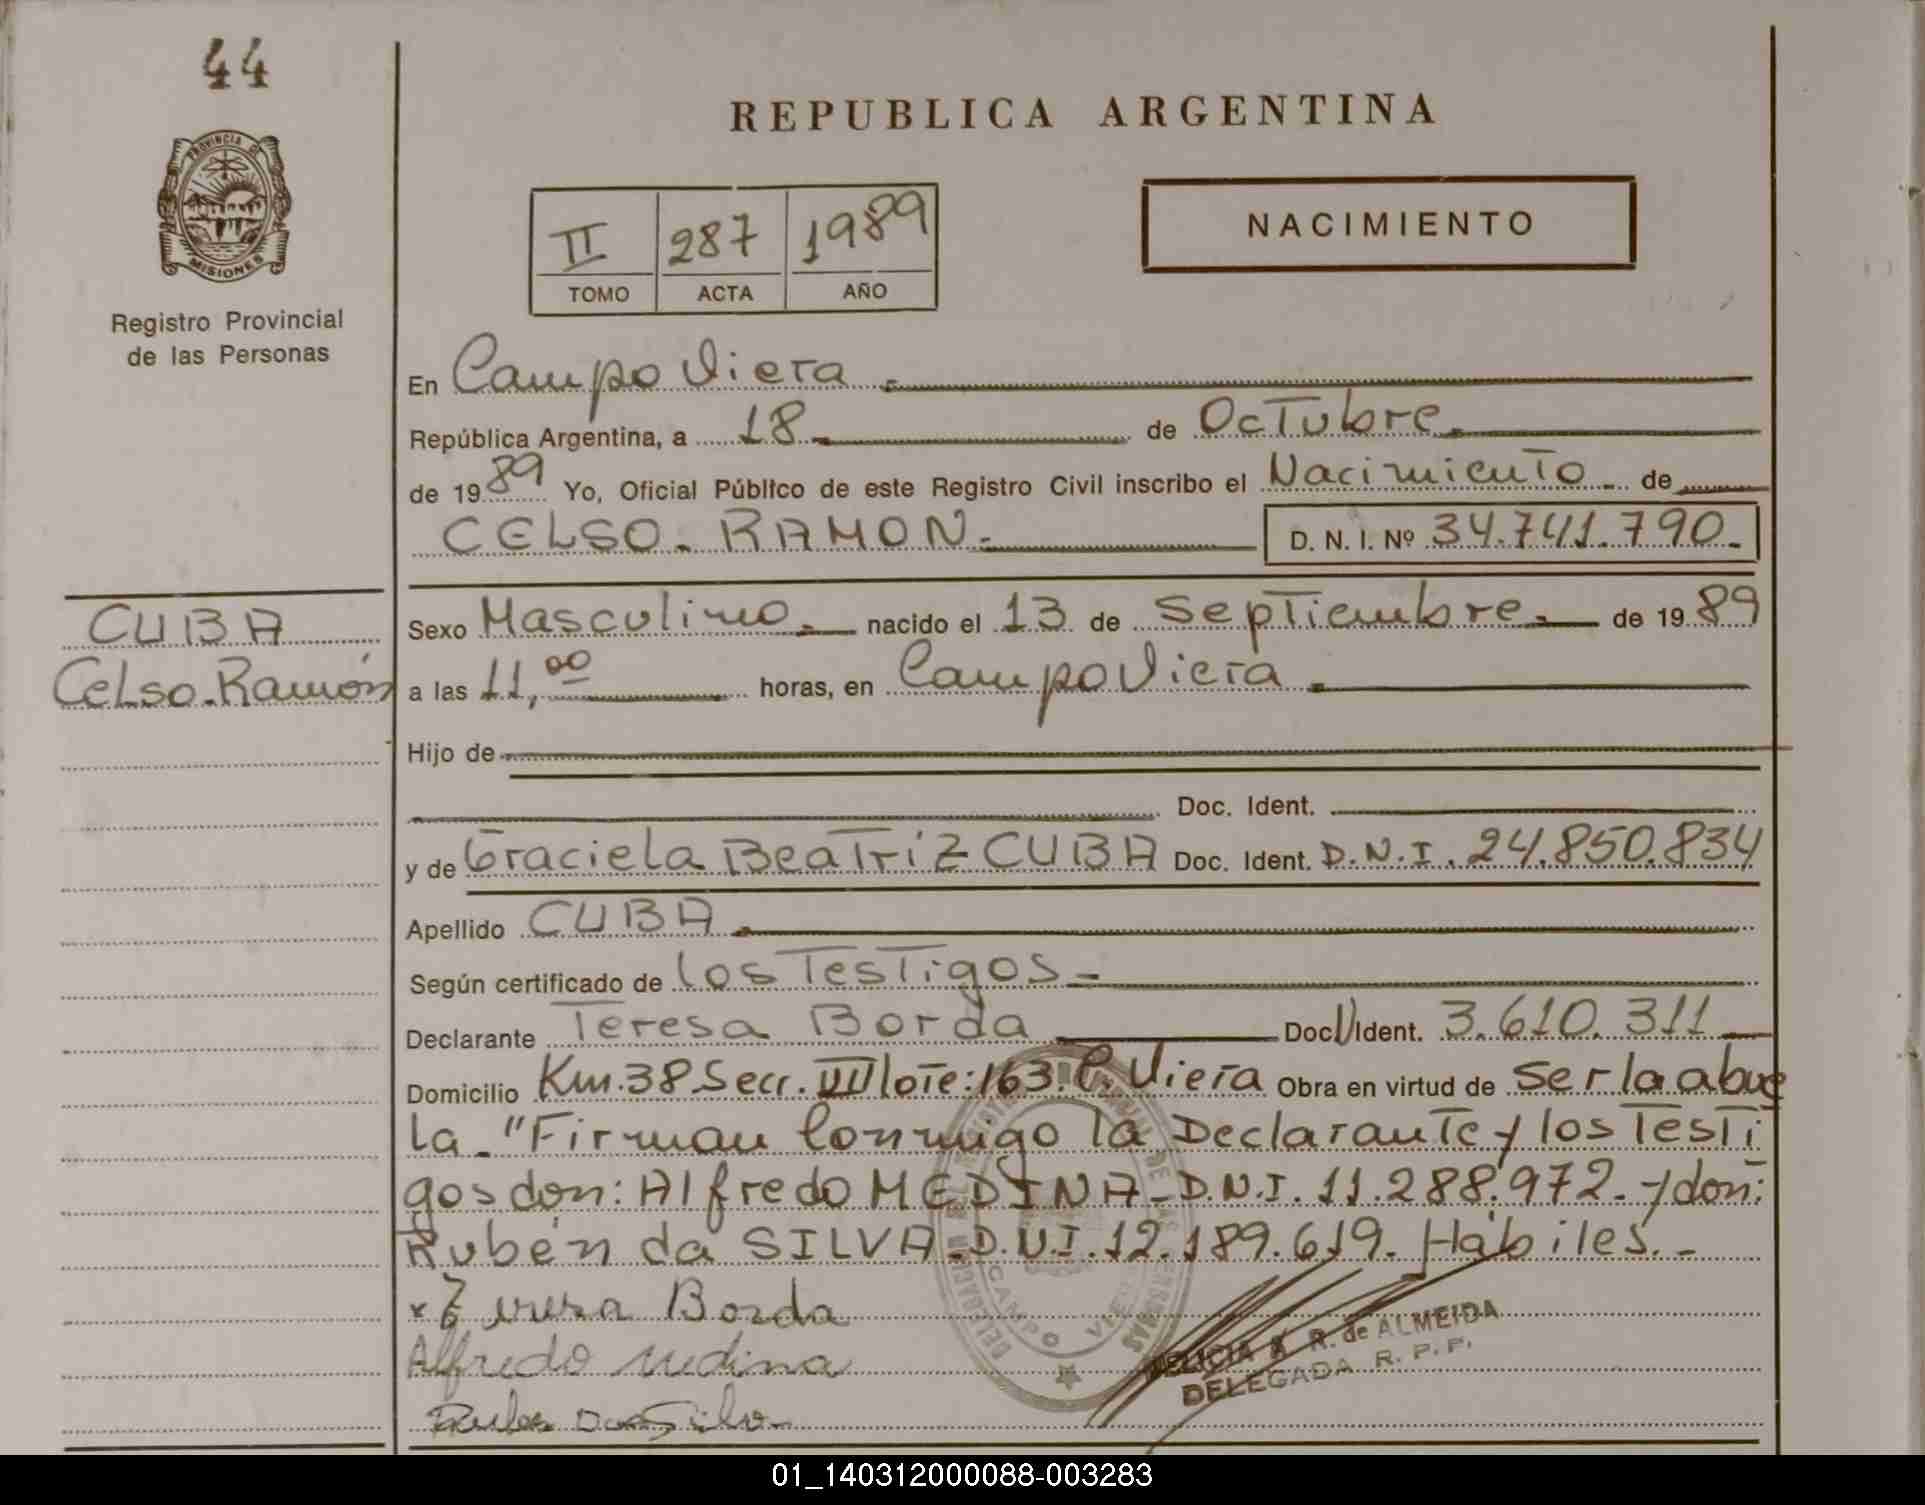 44
PROVINCIA DE
MISIONES
Registro Provincial
de las Personas
REPUBLICA ARGENTINA
II 287 1989
TOMO ACTA AÑO
NACIMIENTO
En Campo Viera
República Argentina, a 18 de Octubre
de 1989 Yo, Oficial Público de este Registro Civil inscribo el Nacimiento de
CELSO RAMON. D. N. I. Nº 34.741.790.
CUBA
Celso Ramón
Sexo Masculino nacido el 13 de Septiembre de 1989
a las 11,00 horas, en Campo Viera
Hijo de
Doc. Ident.
y de Graciela Beatriz CUBA Doc. Ident. D.N.I. 24.850.834
Apellido CUBA
Según certificado de los Testigos
Declarante Teresa Borda Doc. Ident. 3.610.311
Domicilio Km.38 Secc. VIII lote: 163. C. Viera Obra en virtud de ser la abue
la. "Firman Conmigo la Declarante y los Testi
gos don: Alfredo MEDINA D.N.I. 11.288.972. y don:
Rubén da SILVA D.N.I. 12.189.619. Hábiles.
x Teresa Borda
Alfredo Medina
Ruben Da Silva
DELICIA R. de ALMEIDA
DELEGADA R. P. P.
CAMPO VIERA
01_140312000088-003283